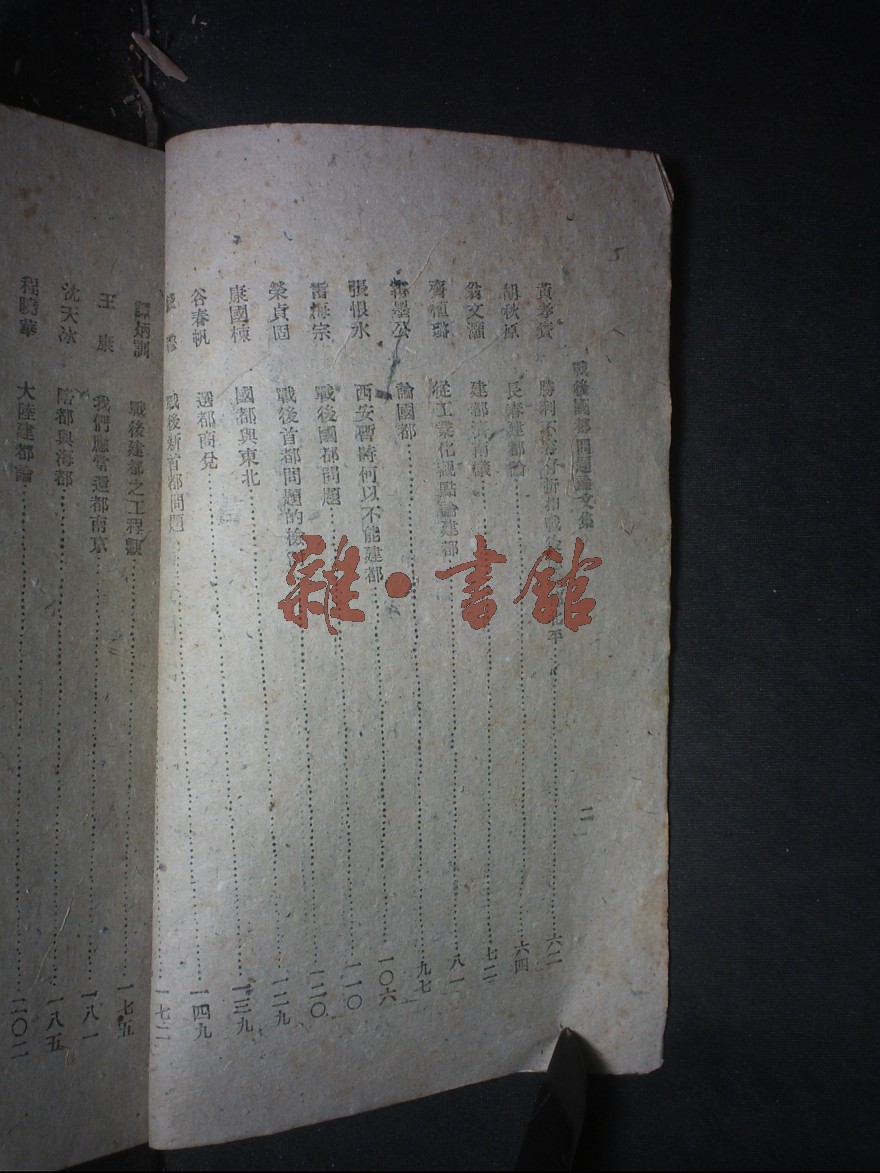 戰後國都問題論文集 二
黃 勝利不 折扣戰 北平 六二
胡秋原 長春建都論 六四
翁文灝 建都濟南議 七二
齊植璐 從工業化觀點論建都 八一
墨公 論國都 九七
張恨水 西安暫時何以不能建都 一〇六
雷海宗 戰後國都問題 一一〇
榮貞固 戰後首都問題的檢 一二〇
康國棟 國都與東北 一二九
谷春帆 選都商兌 一三九
戰後新首都問題 一四九
譚炳訓 戰後建都之工程觀 一七二
王康 我們應當還都南京 一七五
沈天冰 陪都與海都 一八一
程曉華 大陸建都論 一八五
二〇二
雜·書館